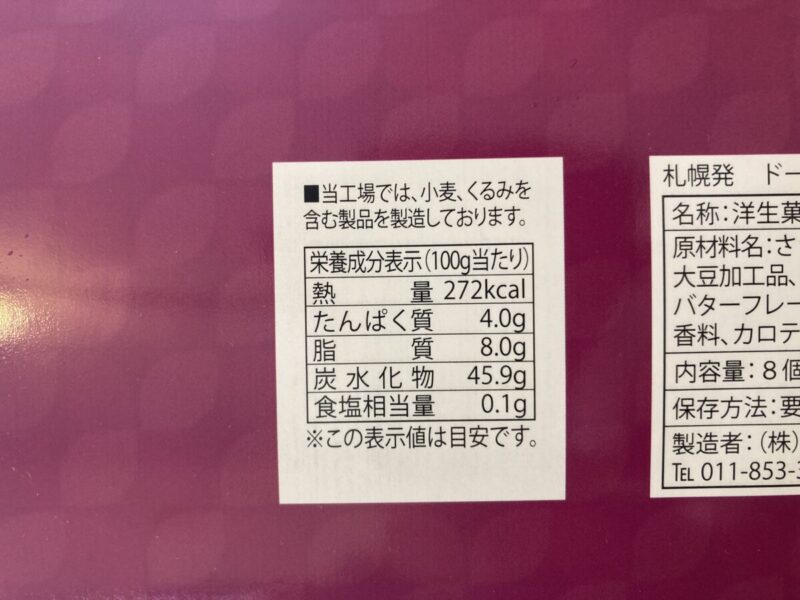 ■当工場では、小麦、くるみを
含む製品を製造しております。
栄養成分表示(100g当たり)
熱量 272kcal
たんぱく質 4.0g
脂質 8.0g
炭水化物 45.9g
食塩相当量 0.1g
※この表示値は目安です。
札幌発 ドー
名称:洋生菓
原材料名:さ
大豆加工品、
バターフレー
香料、カロテ
内容量:8個
保存方法:要
製造者:(株)
TEL 011-853-3